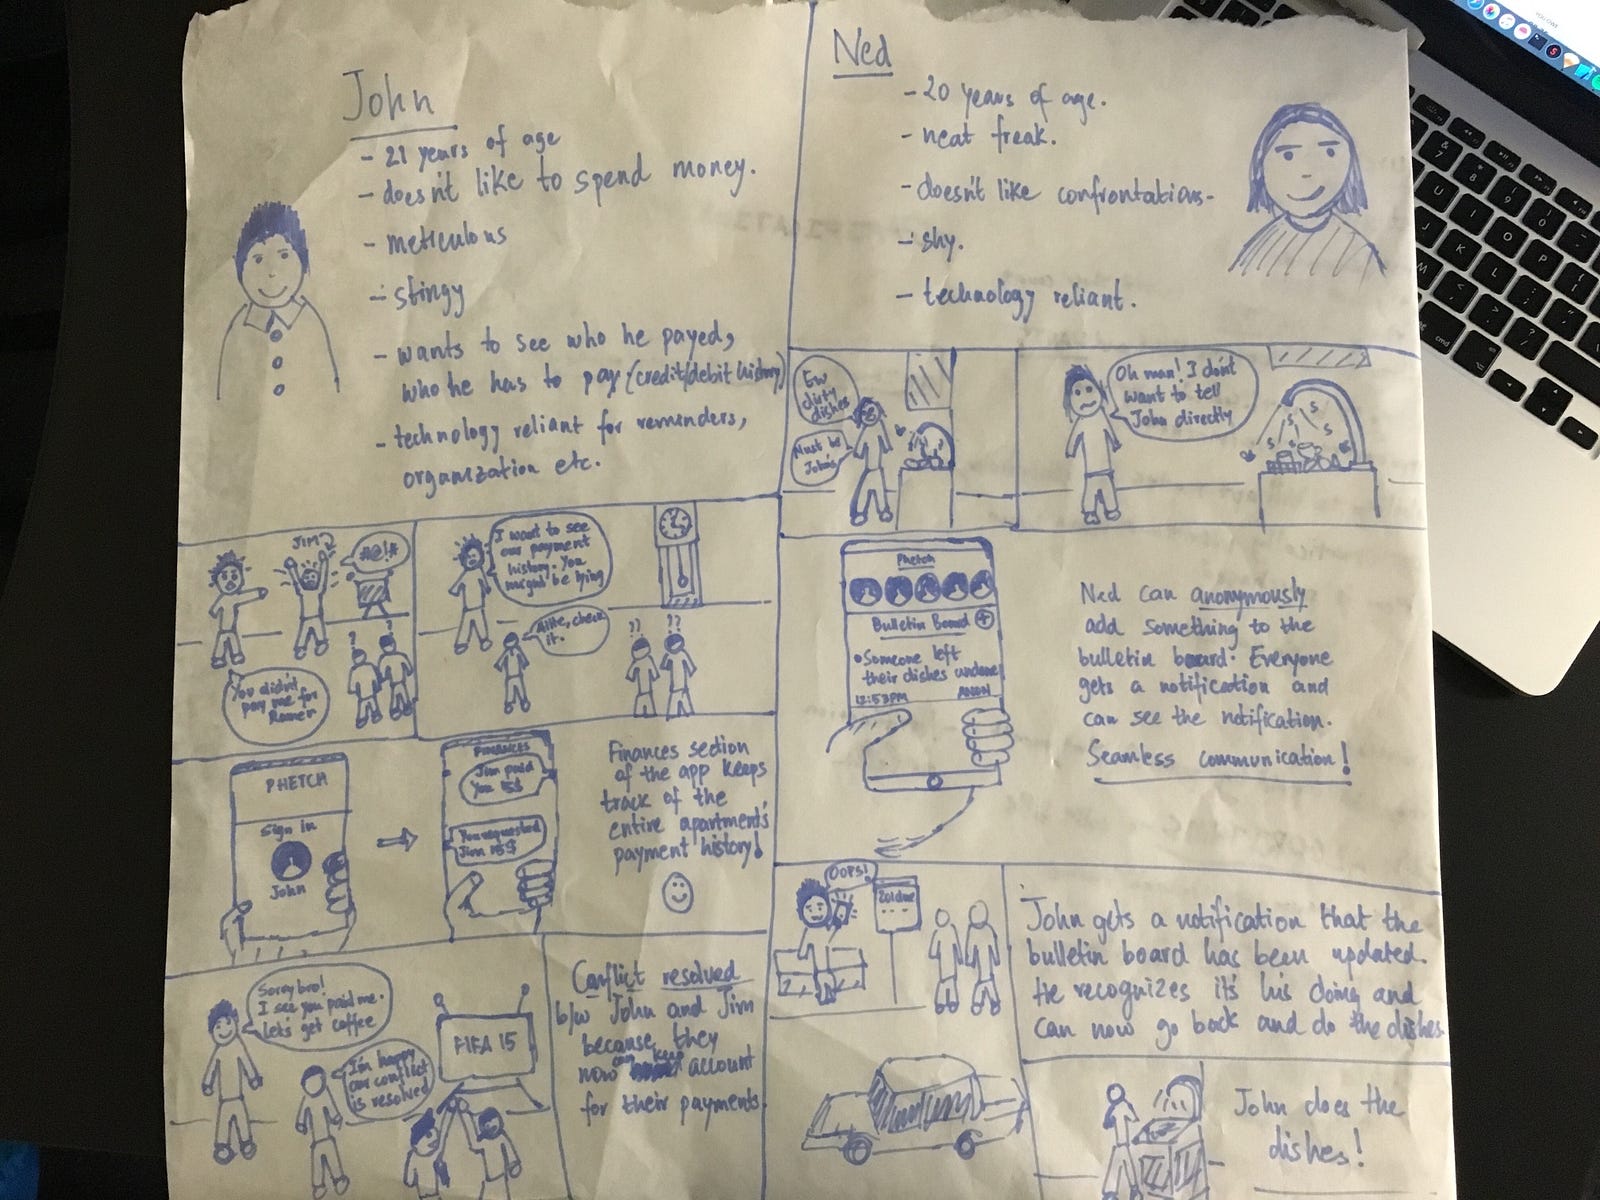 John
- 21 years of age
- doesn't like to spend money.
- meticulous
- stingy
- wants to see who he payed,
who he has to pay (credit/debit history)
- technology reliant for reminders,
organization etc.
JIM
#@!#
You didn't
pay me for
Ramen
I want to see
our payment
history. You
might be lying
check
it.
?
?
??
??
PHETCH
Sign in
John
FINANCES
Jim paid
you 15$
You requested
Jim 15$
Finances section
of the app keeps
track of the
entire apartment's
payment history!
Sorry bro!
I see you paid me.
Let's get coffee
I'm happy
our conflict
is resolved
FIFA 15
Conflict resolved
b/w John and Jim
because they
now can keep account
for their payments
Ned
- 20 years of age.
- neat freak.
- doesn't like confrontations.
- shy.
- technology reliant.
Ew
dirty
dishes
Must be
John's
Oh man! I don't
want to tell
John directly
Phetch
Bulletin Board +
• Someone left
their dishes undone
12:53PM ANON
Ned can anonymously
add something to the
bulletin board. Everyone
gets a notification and
can see the notification.
Seamless communication!
OOPS!
John gets a notification that the
bulletin board has been updated.
He recognizes it's his doing and
can now go back and do the dishes
John does the
dishes!